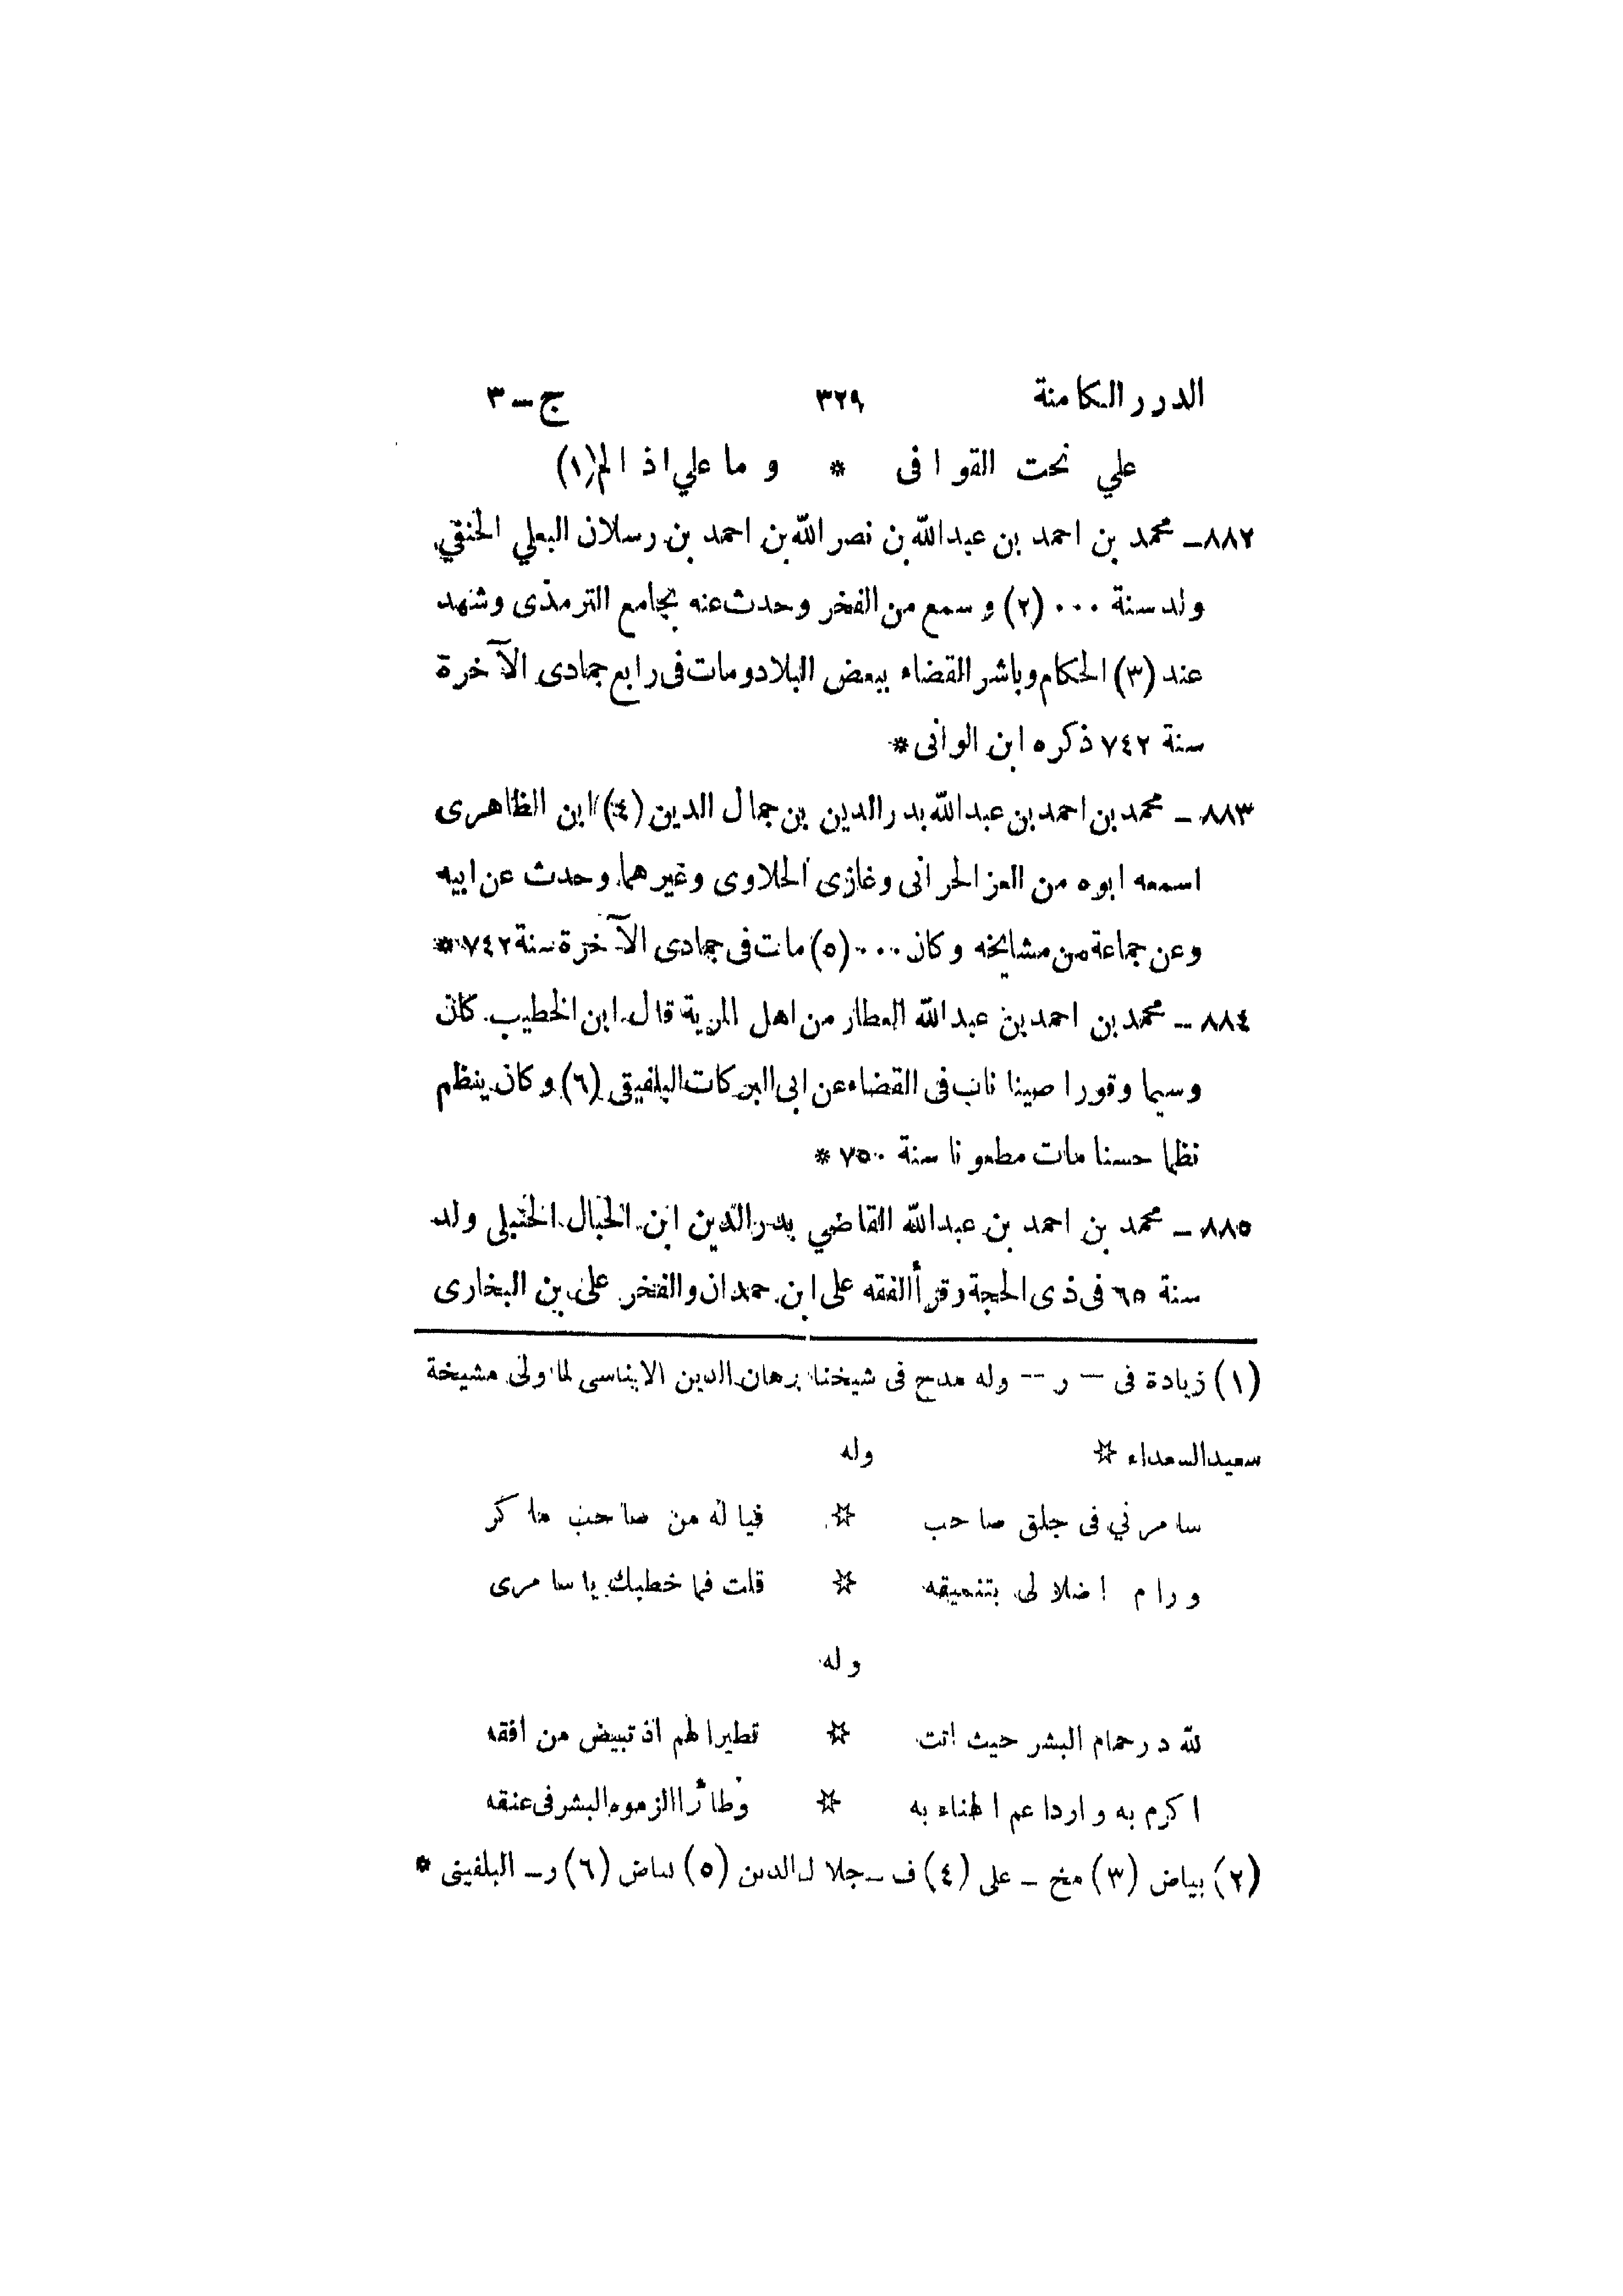 الدرر الكامنة ٣٢٩ ج – ٣
علي نحت القوافى * وما علي اذا لم (١)
٨٨٢ – محمد بن احمد بن عبدالله بن نصر الله بن احمد بن رسلان البعلي الحنفي
ولد سنة ٠٠٠ (٢) وسمع من الفخر وحدث عنه بجامع الترمذى وشهد
عند (٣) الحكام وباشر القضاء ببعض البلاد ومات فى رابع جمادى الآخرة
سنة ٧٤٢ ذكره ابن الوانى *
٨٨٣ – محمد بن احمد بن عبدالله بدر الدين بن جمال الدين (٤) ابن الظاهرى
اسمعه ابوه من العز الحرانى وغازى الحلاوى وغيرهما وحدث عن ابيه
وعن جماعة من مشايخه وكان ٠٠٠ (٥) مات فى جمادى الآخرة سنة ٧٤٢ *
٨٨٤ – محمد بن احمد بن عبدالله العطار من اهل المرية قال ابن الخطيب كان
وسيما وقورا صينا ناب فى القضاء عن ابى البركات البلفيقى (٦) وكان ينظم
نظما حسنا مات مطعونا سنة ٧٥٠ *
٨٨٥ – محمد بن احمد بن عبدالله القاضي بدر الدين ابن الحبال الحنبلى ولد
سنة ٦٥ فى ذى الحجة وقرأ الفقه على ابن حمدان والفخر على بن البخارى
(١) زيادة فى – ر – وله مدح فى شيخنا برهان الدين الابناسى لما ولى مشيخة
سعيد السعداء ☆ وله
سامرني فى جلق صاحب ☆ فيا له من صاحب ماكر
ورام اضلالى بتنميقه ☆ قلت فما خطبك يا سامرى
وله
لله در حمام البشر حيث اتت ☆ تطيرا لهم اذ تبيض من افقه
اكرم به واردا عم الهناء به ☆ وطائرا الزموه البشر فى عنقه
(٢) بياض (٣) مخ – على (٤) ف – جلال الدين (٥) بياض (٦) ر – البلفينى *